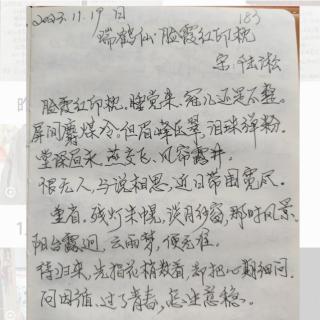 2023.11.19日
183
瑞鹤仙·脸霞红印枕
宋 陆淞
脸霞红印枕,睡觉来、冠儿还是不整。
屏间麝煤冷。但眉峰压翠,泪珠弹粉。
堂深昼永,燕交飞、风帘露井。
恨无人,与说相思,近日带围宽尽。
重省。残灯朱幌,淡月纱窗,那时风景。
阳台路迥,云雨梦,便无准。
待归来,先指花梢教看,却把心期细问。
问因循,过了青春,怎生意稳。